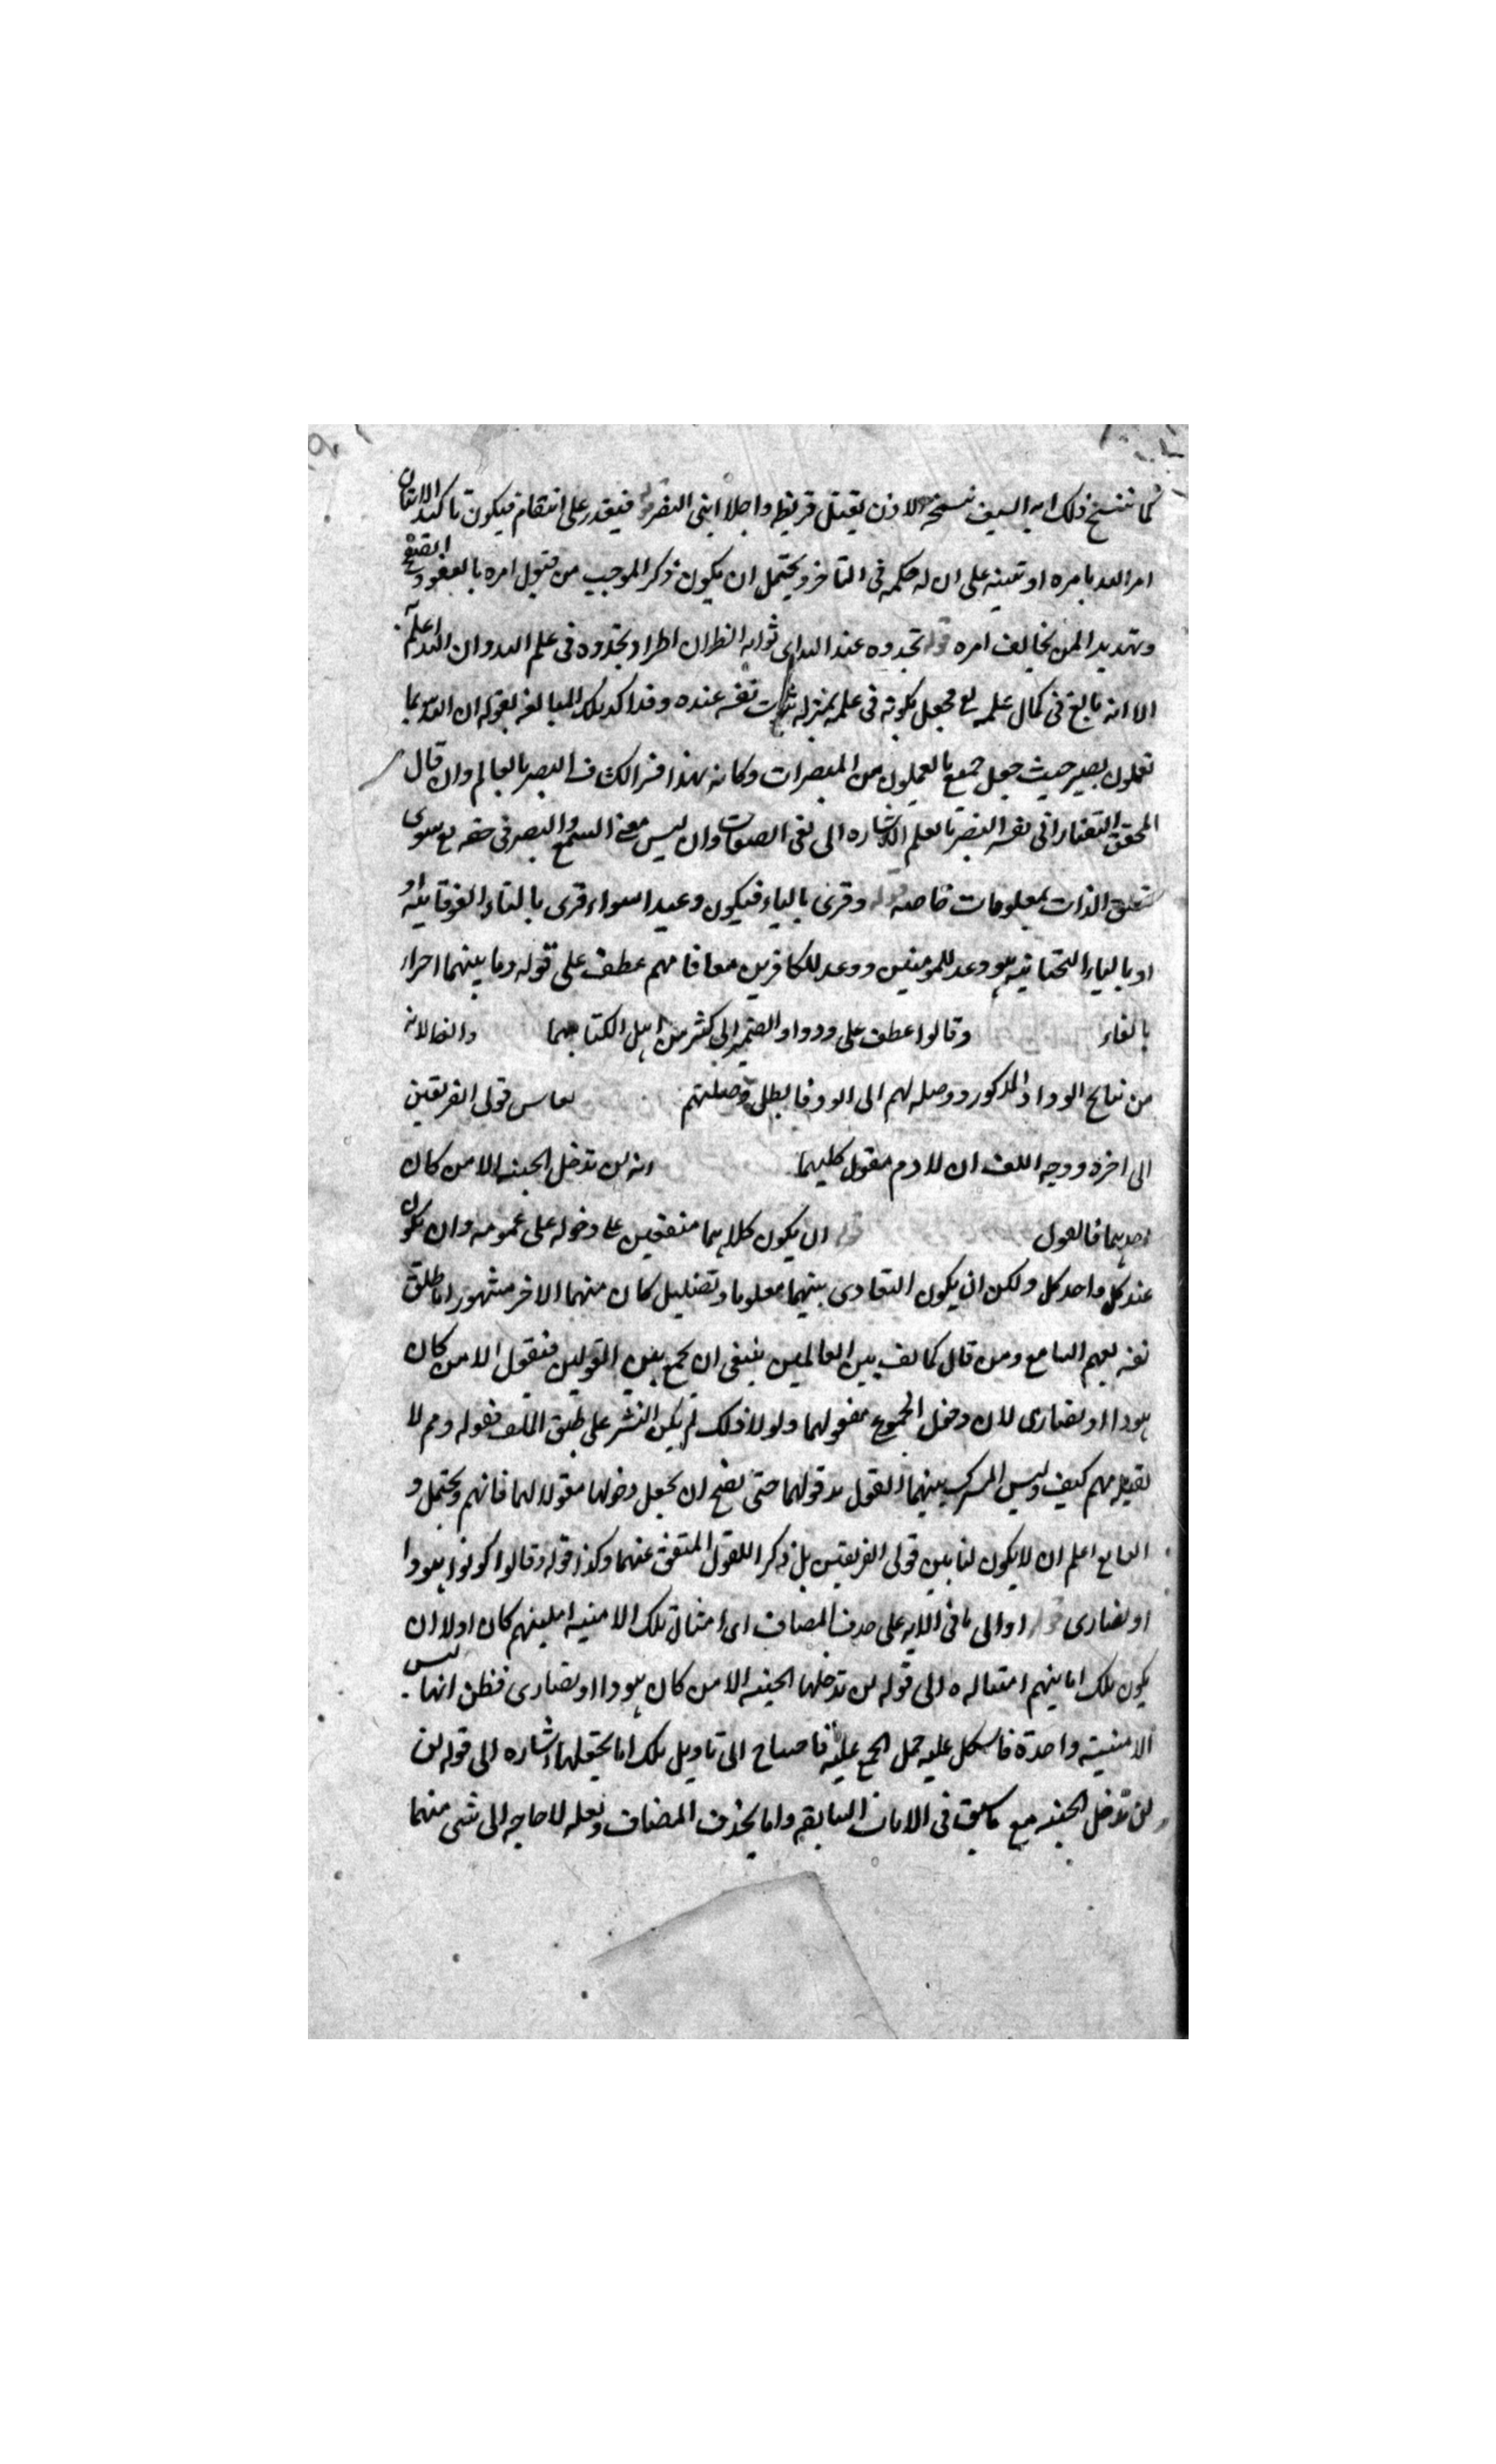 كما ننسخ ذلك اية السيف نسخه الاذن بقتل قريظه واجلا ابنى النضر قوله فيقدر على انتقام فيكون تاكيد الاتيان
امر الله بامره او تنبيه على ان له حكمه فى التاخر ويحتمل ان يكون ذكر الموجب من قبول امره بالعفو والصفح
وتهديد المن يخالف امره قوله تجدوه عند الله اى ثوابه الظ ان اطراد تجدوه فى علم الله وان الله اعلم
الا انه بالغ فى كمال علمه تع فجعل ثبوته فى علمه بمنزله ثبوت نفسه عنده وقد اكد تلك المبالغه بقوله ان الله بما
تعملون بصير حيث جعل جميع ما تعملون من المبصرات وكانه لهذا فسر الكشاف البصير بالعالم وان قال
المحقق التفتازانى تفسير البصير بالعلم اشاره الى نفى الصفات وان ليس معنى السمع والبصر فى حقه تع سوى
تعلق الذات بمعلومات خاصه قوله وقرى بالياء فيكون وعيدا سواء قرى بالتاء الفوقانيه او
او بالياء التحتانيه هو وعد للمومنين ووعد للكافرين معاقا مهم عطف على قوله وما بينهما احرار
بالفاء وقالوا عطف على ودوا والضمير الى كثير من اهل الكتاب بهما والفا لانه
من نتايج الوداد المذكور ووصله لهم الى الود فابطل وصيلتهم بين قولى الفريقين
الى اخره ووجه اللف ان لا دم مقول كليهما انه لن تدخل الجنه الا من كان
احدهما فالقول قوله ان يكون كلاهما متفقين على دخوله على عمومه وان يكون
عند كل واحد كل ولكن ان يكون التعادى بينهما معلوما وتضليل كان منهما الاخر مشهورا ما طلق
نفسه لفهم السامع ومن قال كما لف بين العالمين ينبغى ان يجمع بين القولين فيقول الا من كان
هودا او نصارى لان دخول المجموع مقولهما ولولا ذلك لم يكن النشر على طبق اللف فقوله وهم لا
لقيله مهم كيف وليس المشترك بينهما القول قولهما حتى يصح ان يجعل دخولها مقولا لهما فانهم ويحتمل و
الله تع اعلم ان لا يكون لفا بين قولى الفريقين بل ذكرا للقول المتفق عنهما وكذا قوله وقالوا كونوا هودا
او نصارى قوله او الى ما فى الايه على حذف المضاف اى امثال تلك الامنيه امانيهم كان اولا ان
يكون تلك امانيهم الى قوله لن تدخلها الجنه الا من كان هودا او نصارى فظن انها ليس
الا امنيته واحدة فاشكل عليه حمل الجمع عليه فاحتاج الى تاويل تلك اما بجعلها اشاره الى قوله لن
لن تدخل الجنه مع ما سبق فى الايات السابقه واما بحذف المضاف ولعله لا حاجه الى شى منهما